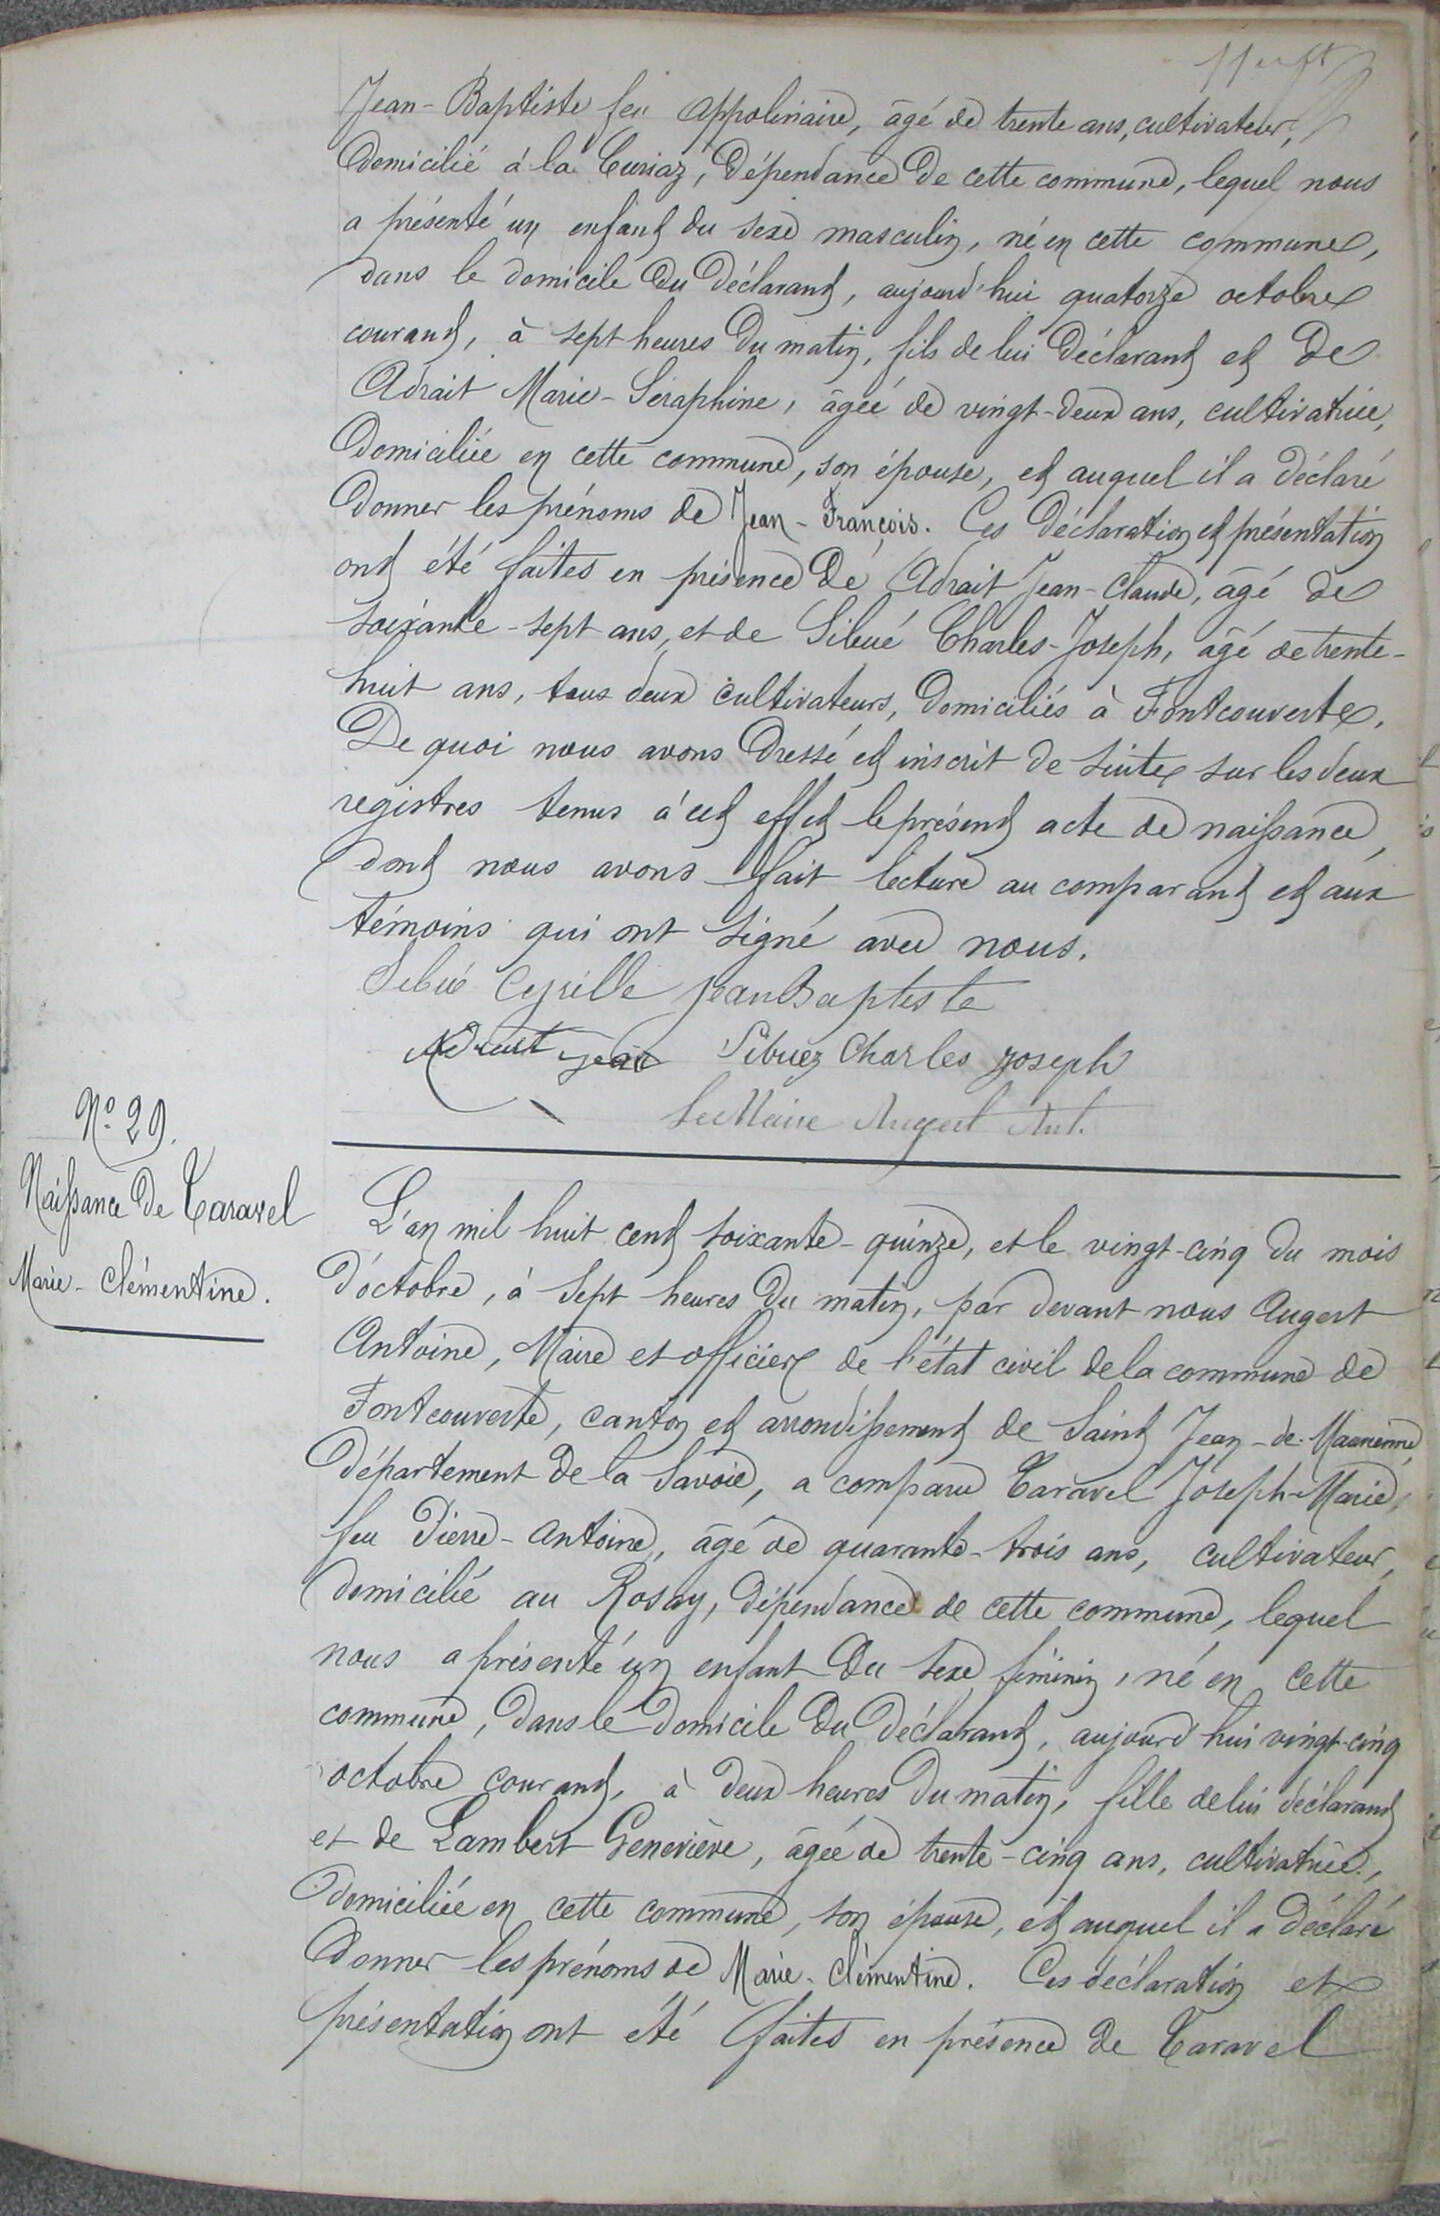 Jean-Baptiste feu Appolinaire, âgé de trente ans, cultivateur,
domicilié à la Curiaz, dépendance de cette commune, lequel nous
a présenté un enfant du sexe masculin, né en cette commune,
dans le domicile du déclarant, aujourd'hui quatorze octobre
courant, à sept heures du matin, fils de lui déclarant et de
Adrait Marie-Séraphine, âgée de vingt-deux ans, cultivatrice,
domiciliée en cette commune, son épouse, et auquel il a déclaré
donner les prénoms de Jean-François. Ces déclaration et présentation
ont été faites en présence de Adrait Jean-Claude, âgé de
soixante-sept ans, et de Sibué Charles-Joseph, âgé de trente-
huit ans, tous deux cultivateurs, domiciliés à Fontcouverte.
De quoi nous avons dressé et inscrit de suite sur les deux
registres tenus à cet effet le présent acte de naissance,
dont nous avons fait lecture au comparant et aux
témoins qui ont signé avec nous.
Sibué Cyrille Jean Baptiste
Adrait Jean Sibuez Charles Joseph
Le Maire Augert Ant.
N.º 29.
Naissance de Taravel
Marie-Clémentine.
L'an mil huit cent soixante-quinze, et le vingt-cinq du mois
d'octobre, à sept heures du matin, par devant nous Augert
Antoine, Maire et officier de l'état civil de la commune de
Fontcouverte, canton et arrondissement de Saint Jean-de-Maurienne,
département de la Savoie, a comparu Taravel Joseph-Marie,
feu Pierre-Antoine, âgé de quarante-trois ans, cultivateur,
domicilié au Rosay, dépendance de cette commune, lequel
nous a présenté un enfant du sexe féminin, né en cette
commune, dans le domicile du déclarant, aujourd'hui vingt-cinq
octobre courant, à deux heures du matin, fille de lui déclarant
et de Lambert Geneviève, âgée de trente-cinq ans, cultivatrice,
domiciliée en cette commune, son épouse, et auquel il a déclaré
donner les prénoms de Marie-Clémentine. Ces déclaration et
présentation ont été faites en présence de Taravel